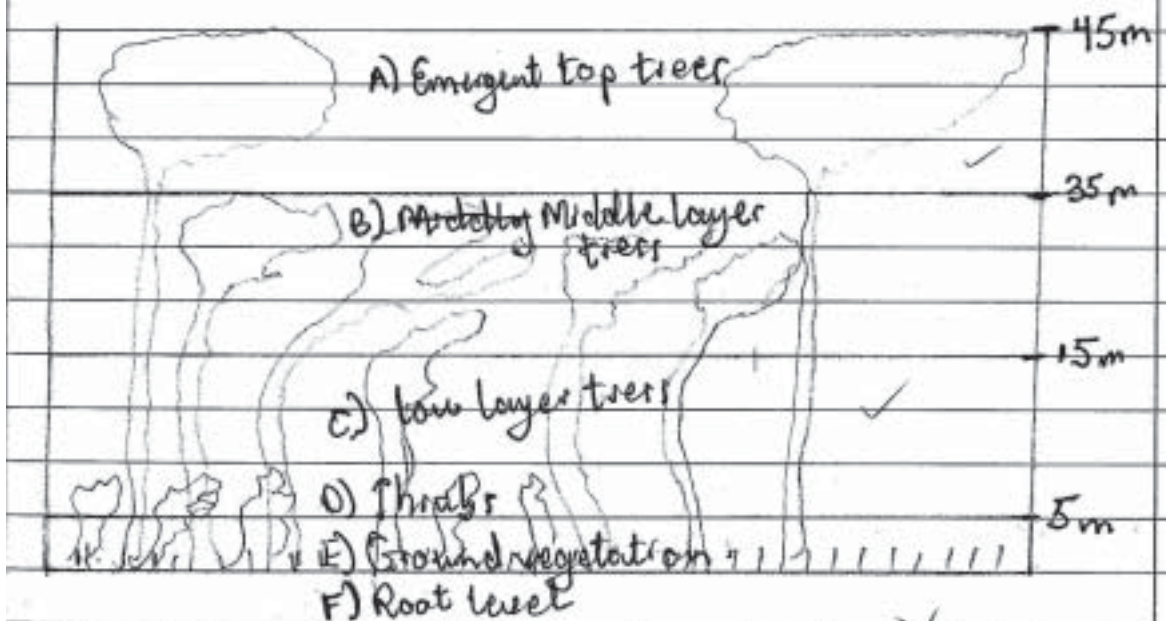 45m
A) Emergent top trees
35m
B) Middle layer
trees
15m
C) Low layer trees
D) Shrubs
5m
E) Ground vegetation
F) Root level